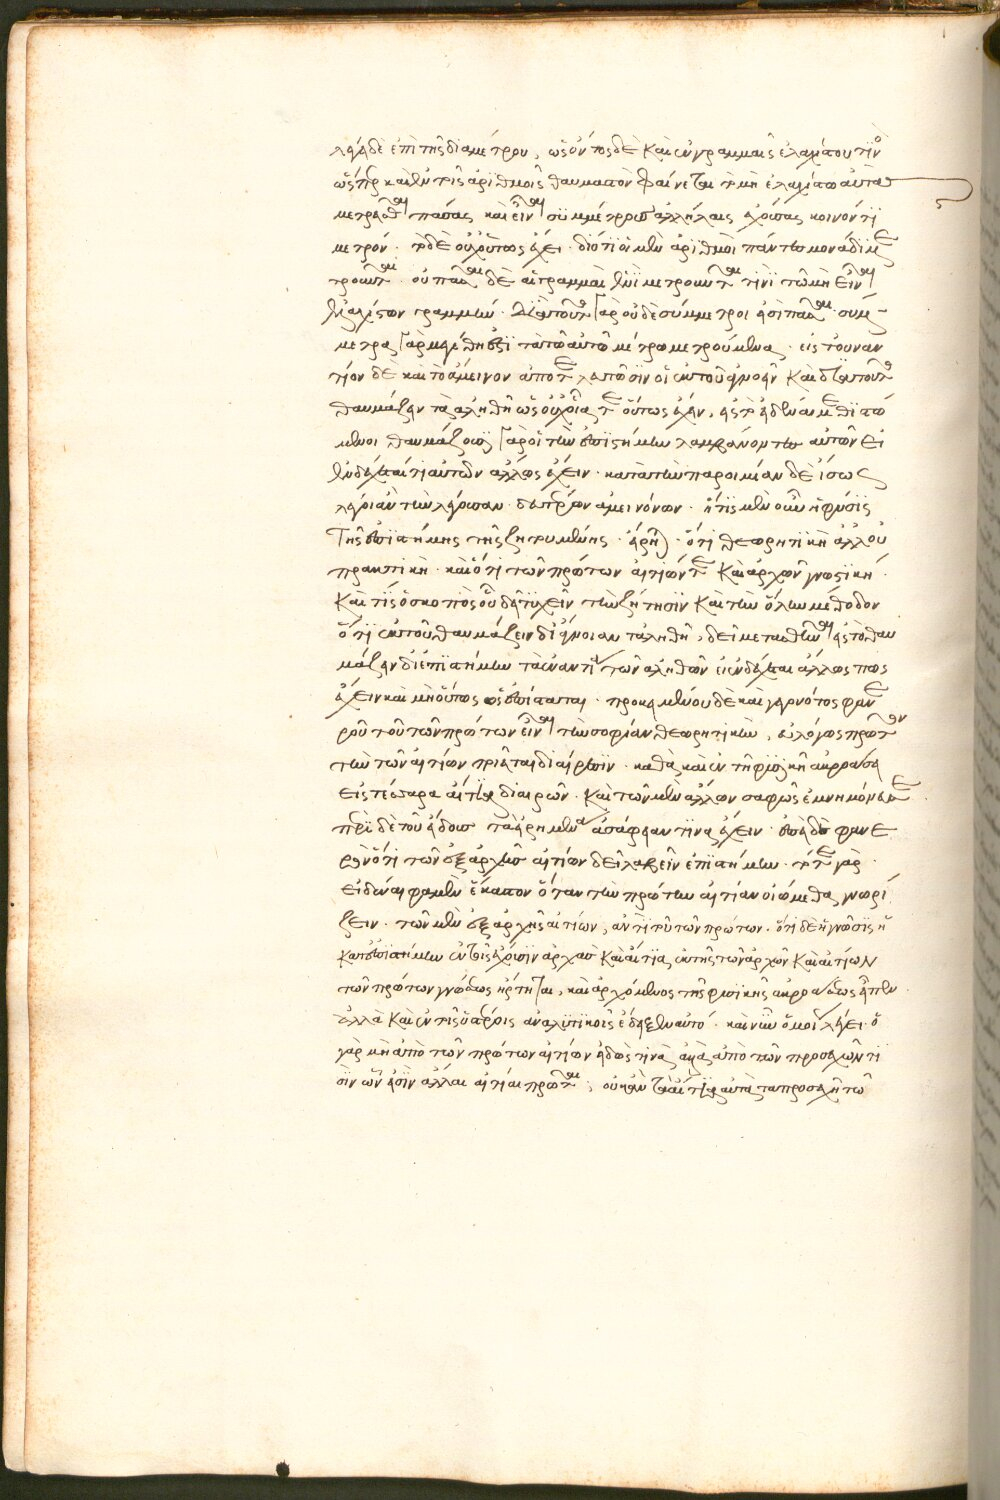 λέγει δὲ ἐπὶ τῆς διαμέτρου, ὡς ὄντος δὲ καὶ ἐν γραμμαῖς ἐλαχίστου τινὸς
ὥσπερ καὶ ἐν τοῖς ἀριθμοῖς θαυμαστὸν φαίνεται τὸ μὴ ἐλαχίστω αὐτὰς
μετρεῖσθαι πάσας καὶ εἶναι συμμέτρους ἀλλήλαις ἐχούσας κοινόν τι
μέτρον. τὸ δὲ οὐχ οὕτως ἔχει. διότι οἱ μὲν ἀριθμοὶ πάντες μονάδι με
τροῦνται. οὐ πᾶσαι δὲ αἱ γραμμαὶ ἑνὶ μετροῦνται τινὶ τῶ μὴ εἶναι
ἐλαχίστην γραμμήν. διὰ τοῦτο γὰρ οὐδὲ σύμμετροι εἰσὶ πᾶσαι. σύμ
μετρα γὰρ μεγέθη ἐστὶ τὰ τῶ αὐτῶ μέτρω μετρούμενα. εἰς τοὐναν
τίον δὲ καὶ τὸ ἄμεινον ἀποτελευτῶσιν οἱ ἐκ τοῦ ἀγνοεῖν καὶ διὰ τοῦτο
θαυμάζειν τὰ ἀληθῆ ὡς οὐχ οἷά τε οὕτως ἔχειν, εἰς τὸ εἰδέναι μεθιστά
μενοι θαυμάζουσι γὰρ οἱ τὴν ἐπιστήμην λαμβάνοντες αὐτῶν εἰ
ἐνδέχεταί τι αὐτῶν ἄλλως ἔχειν. κατὰ τὴν παροιμίαν δὲ ἴσως
λέγοι ἂν τὴν λέγουσαν. δευτέρων ἀμεινόνων. ἥτις μὲν οὖν ἡ φύσις
τῆς ἐπιστήμης τῆς ζητουμένης. εἴρηται. ὅτι θεωρητικὴ ἀλλ' οὐ
πρακτική. καὶ ὅτι τῶν πρώτων αἰτιῶν τε καὶ ἀρχῶν γνωστική.
καὶ τίς ὁ σκοπὸς οὗ δεῖ τυχεῖν τὴν ζήτησιν καὶ τὴν ὅλην μέθοδον
ὅτι ἐκ τοῦ θαυμάζειν δι' ἄγνοιαν τἀληθῆ, δεῖ μεταβῆναι εἰς τὸ θαυ
μάζειν δι' ἐπιστήμην τὰ ἐναντία τῶν ἀληθῶν εἰ ἐνδέχεται ἄλλως πως
ἔχειν καὶ μὴ οὕτως ὡς ἐπίσταται. προκειμένου δὲ καὶ γεγονότος φανε
ροῦ τοῦ τῶν πρώτων εἶναι τὴν σοφίαν θεωρητικήν, εὐλόγως πρῶτον
τὴν τῶν αἰτίων ποιεῖται διαίρεσιν. καθὰ καὶ ἐν τῆ φυσικῆ ἀκροάσει
εἰς τέσσαρα αἴτια διαιρῶν. καὶ τῶν μὲν ἄλλων σαφῶς ἐμνημόνευσε
περὶ δὲ τοῦ εἴδους τὰ εἰρημένα ἀσάφειάν τινα ἔχειν. ἐπεὶ δὲ φανε
ρὸν ὅτι τῶν ἐξ ἀρχῆς αἰτίων δεῖ λαβεῖν ἐπιστήμην. τότε γὰρ
εἰδέναι φαμὲν ἕκαστον ὅταν τὴν πρώτην αἰτίαν οἰώμεθα γνωρί
ζειν. τῶν μὲν ἐξ ἀρχῆς αἰτίων, ἀντὶ τοῦ τῶν πρώτων. ὅτι δὲ ἡ γνῶσις ἡ
κατ' ἐπιστήμην ἐν τοῖς ἔχουσιν ἀρχὰς καὶ αἰτίας ἐκ τῆς τῶν ἀρχῶν καὶ αἰτίων
τῶν πρώτων γνώσεως ἤρτηται, καὶ ἀρχόμενος τῆς φυσικῆς ἀκροάσεως εἶπεν
ἀλλὰ καὶ ἐν τοῖς ὑστέροις ἀναλυτικοῖς ἔδειξεν αὐτό. καὶ νῦν ὅμοια λέγει. ὁ
γὰρ μὴ ἀπὸ τῶν πρώτων αἰτίων εἰδώς τινα ἀλλὰ ἀπὸ τῶν προσεχῶν τι
σὶν ὧν εἰσὶν ἄλλαι αἰτίαι πρῶται, οὐκ ἂν τὰ αἴτια αὐτὰ τὰ προσεχῆ τῶ